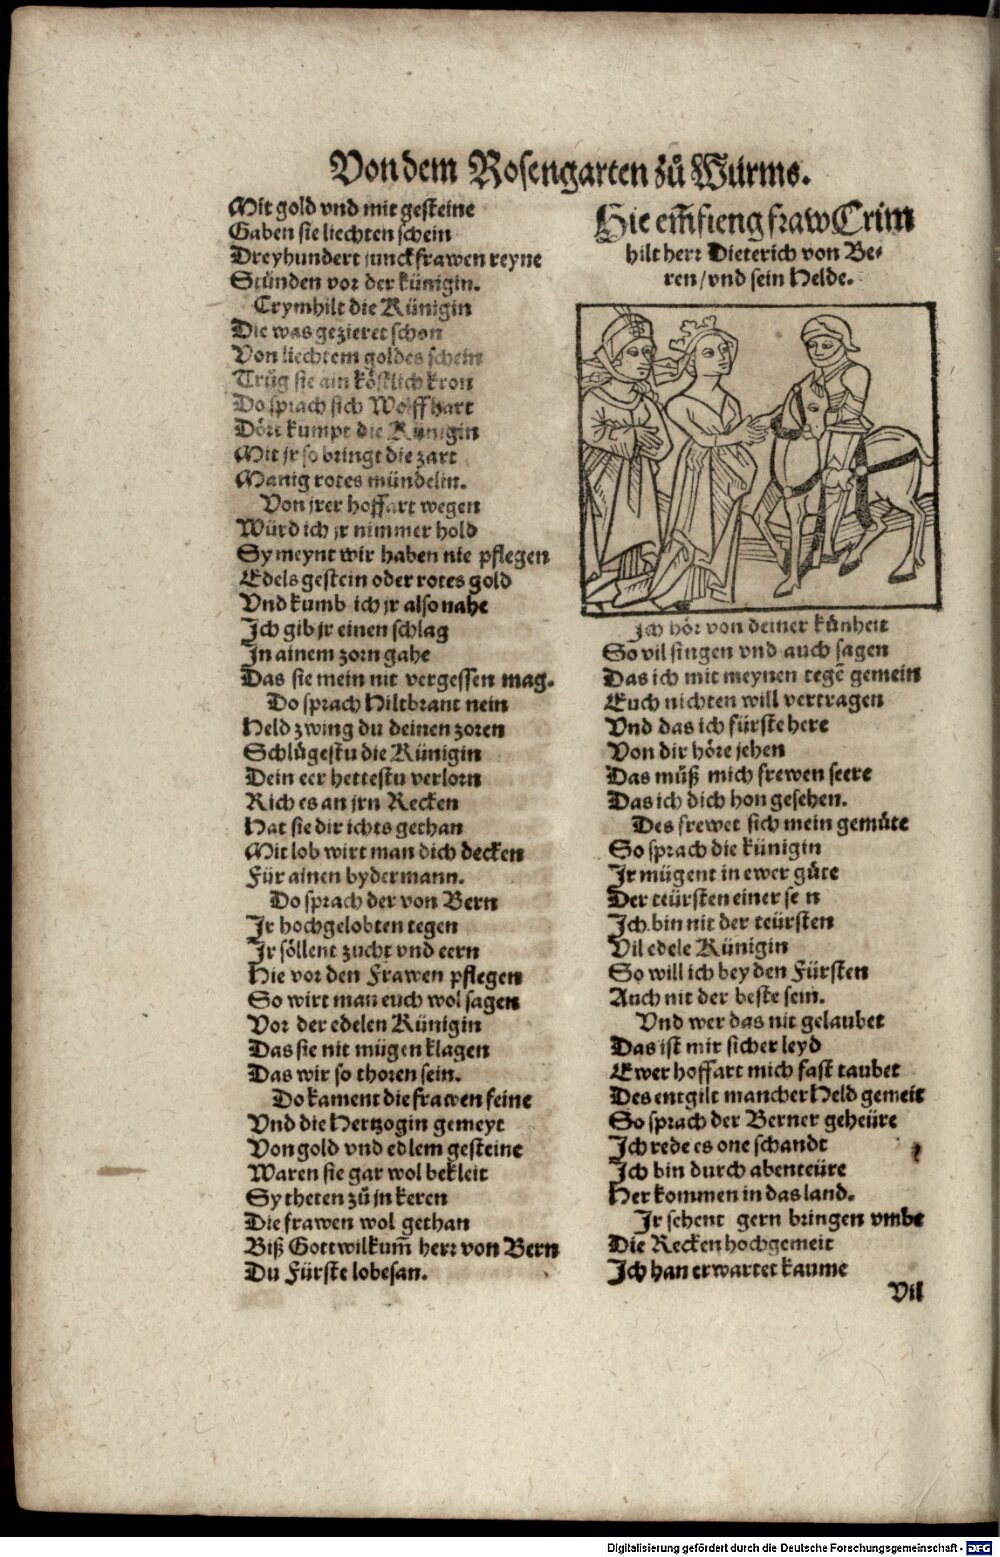 Von dem Rosengarten zů Wurms.
Mit gold vnd mit gesteine
Gaben sie liechten schein
Dreyhundert junckfrawen reyne
Stůnden vor der künigin.
Crymhilt die Künigin
Die was gezieret schon
Von liechtem goldes schein
Trůg sie ain köstlich kron
Do sprach sich Wolffhart
Dört kumpt die Künigin
Mit jr so bringt die zart
Manig rotes mündelin.
Von jrer hoffart wegen
Würd ich jr nimmer hold
Sy meynt wir haben nie pflegen
Edels gestein oder rotes gold
Vnd kumb ich jr also nahe
Ich gib jr einen schlag
In ainem zorn gahe
Das sie mein nit vergessen mag.
Do sprach Hiltbrant nein
Held zwing du deinen zoren
Schlůgestu die Künigin
Dein eer hettestu verlorn
Rich es an jrn Recken
Hat sie dir ichts gethan
Mit lob wirt man dich decken
Für ainen bydermann.
Do sprach der von Bern
Ir hochgelobten tegen
Ir söllent zucht vnd eern
Hie vor den Frawen pflegen
So wirt man euch wol sagen
Vor der edelen Künigin
Das sie nit mügen klagen
Das wir so thoren sein.
Do kament die frawen feine
Vnd die Hertzogin gemeyt
Von gold vnd edlem gesteine
Waren sie gar wol bekleit
Sy theten zů jn keren
Die frawen wol gethan
Biß Gott wilkum̃ herr von Bern
Du Fürste lobesan.
Hie em̃fieng fraw Crim
hilt herr Dieterich von Be-
ren/vnd sein Helde.
Ich hör von deiner künheit
So vil singen vnd auch sagen
Das ich mit meynen tegẽ gemein
Euch nichten will vertragen
Vnd das ich fürste here
Von dir höre jehen
Das můß mich frewen seere
Das ich dich hon gesehen.
Des frewet sich mein gemůte
So sprach die künigin
Ir mügent in ewer gůte
Der teürsten einer se n
Ich bin nit der teürsten
Vil edele Künigin
So will ich bey den Fürsten
Auch nit der beste sein.
Vnd wer das nit gelaubet
Das ist mir sicher leyd
Ewer hoffart mich fast taubet
Des entgilt mancher Held gemeit
So sprach der Berner geheüre
Ich rede es one schandt
Ich bin durch abenteüre
Her kommen in das land.
Ir sehent gern bringen vmbe
Die Recken hochgemeit
Ich han erwartet kaume
Vil
Digitalisierung gefördert durch die Deutsche Forschungsgemeinschaft - DFG